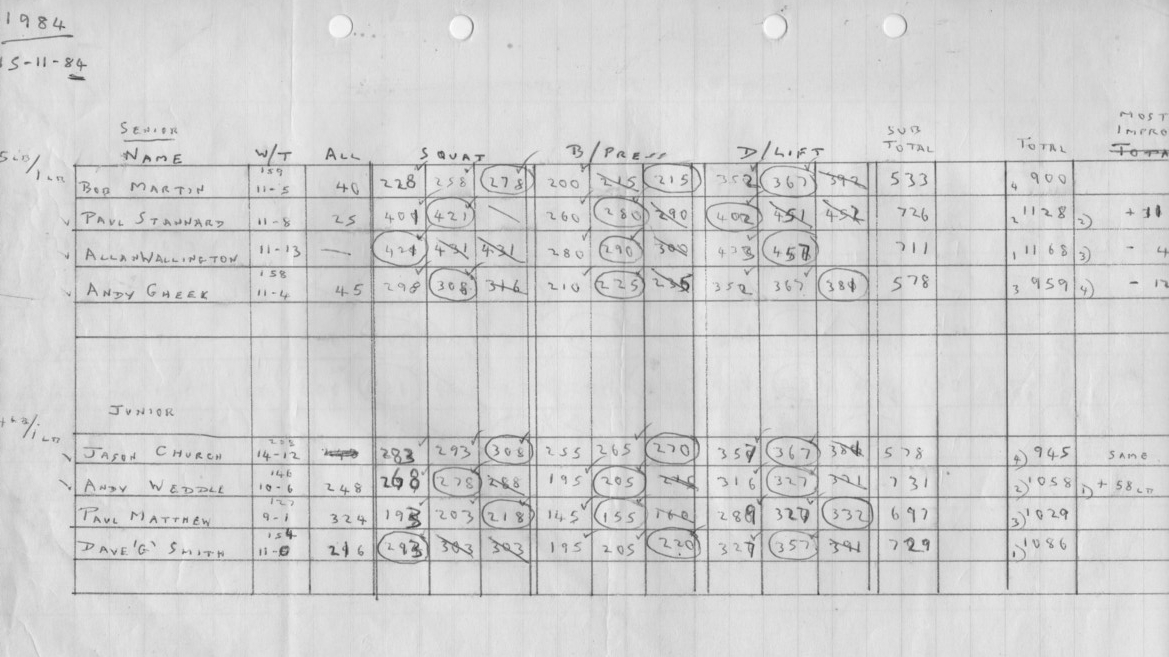 1984
15-11-84
SENIOR
NAME W/T ALL SQUAT B/PRESS D/LIFT SUB TOTAL TOTAL MOST IMPRO
5LB/1LB
159
BOB MARTIN 11-5 40 228 258 278 200 215 215 352 367 392 533 4 900
PAUL STANNARD 11-8 25 401 421 260 280 290 402 451 452 726 2 1128 2) + 11
ALLAN WALLINGTON 11-13 — 421 431 431 280 290 300 423 457 711 1 1168 3) - 4
158
ANDY GHEEK 11-4 45 298 308 316 210 225 235 352 367 381 578 3 959 4) - 12
JUNIOR
JASON CHURCH 14-12 283 293 308 255 265 270 357 367 381 578 4) 945 SAME
146
ANDY WEDDLE 10-6 248 268 278 288 195 205 215 316 327 331 731 2) 1058 1) + 58 LB
127
PAUL MATTHEW 9-1 324 193 203 218 145 155 160 289 327 332 697 3) 1029
154
DAVE 'G' SMITH 11-0 216 293 303 303 195 205 220 327 357 391 729 1) 1086